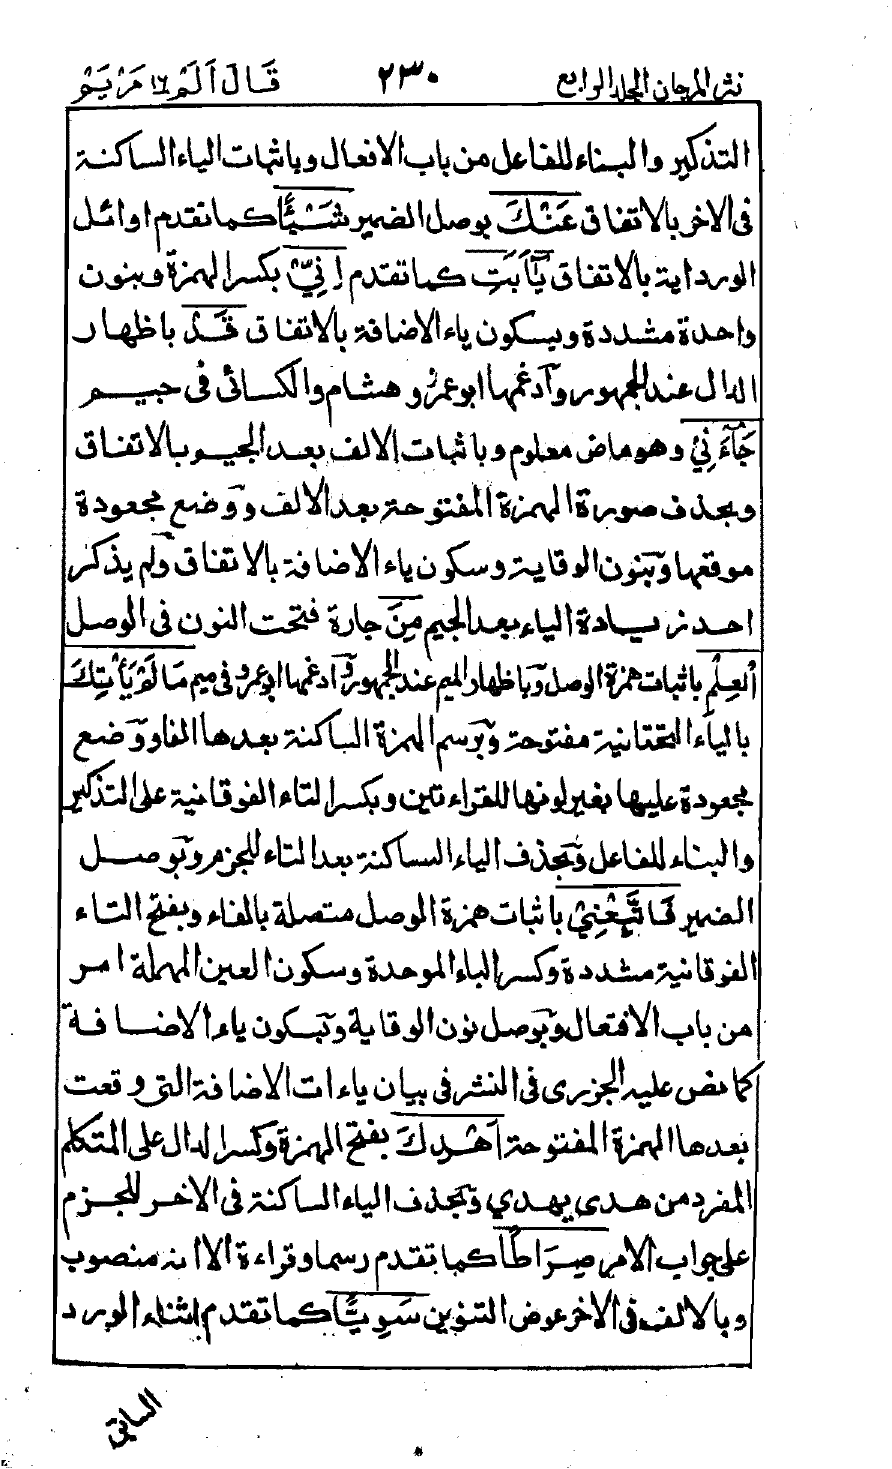 نثر المرجان المجلد الرابع ٢٣٠ قَالَ اَلَمْ ١٦ مَرْيَمْ
التذكير والبناء للفاعل من باب الافعال وباثبات الياء الساكنة
فى الاخر بالاتفاق عَنْكَ بوصل الضمير شَيْـًٔا كما تقدم اوائل
الورد اية بالاتفاق يٰٓاَبَتِ كما تقدم اِنِّيْ بكسر الهمزة وبنون
واحدة مشددة وبسكون ياء الاضافة بالاتفاق قَدْ باظهار
الدال عند الجمهور وآدغمها ابو عمرو و هشام والكسائى فى جيم
جَآءَنِيْ وهو ماض معلوم وباثبات الالف بعد الجيم بالاتفاق
وبحذف صورة الهمزة المفتوحة بعد الالف ووضع مجعودة
موقعها وبنون الوقاية وسكون ياء الاضافة بالاتفاق ولم يذكر
احد زيادة الياء بعد الجيم مِنَ جارة فتحت النون فى الوصل
الْعِلْمِ باثبات همزة الوصل وباظهار الميم عند الجمهور وآدغمها ابو عمرو فى ميم مَا لَمْ يَأْتِكَ
بالياء التحتانية مفتوحة وبرسم الهمزة الساكنة بعدها الفا ووضع
مجعودة عليها بغير لونها للقراءتين وبكسر التاء الفوقانية على التذكير
والبناء للفاعل وبحذف الياء الساكنة بعد التاء للجزم وبوصل
الضمير فَاتَّبِعْنِيْ باثبات همزة الوصل متصلة بالفاء وبفتح التاء
الفوقانية مشددة وكسر الباء الموحدة وسكون العين المهملة امر
من باب الافتعال وبوصل نون الوقاية وبسكون ياء الاضافة
كما نص عليه الجزرى فى النشر فى بيان ياءات الاضافة التى وقعت
بعدها الهمزة المفتوحة اَهْدِكَ بفتح الهمزة وكسر الدال على المتكلم
المفرد من هدى يهدي وبحذف الياء الساكنة فى الاخر للجزم
على جواب الامر صِرَاطًا كما تقدم رسما وقراءة الا انه منصوب
وبالالف فى الاخر عوض التنوين سَوِيًّا كما تقدم اثناء الورد
الساقى